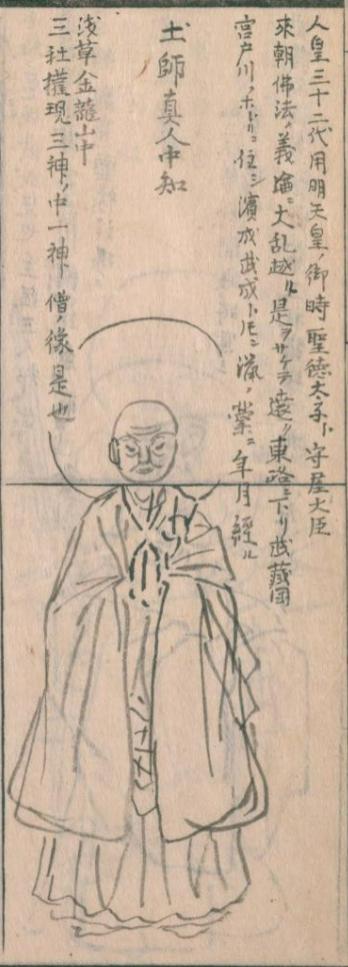 人皇三十二代用明天皇ノ御時聖徳太子ト守屋大臣
來朝佛法ノ義論ニ大乱越ル是ヲサケテ遠ク東路ニ下リ武藏国
宮戸川ノホトリニ住シ濱成武成トモニ漁ノ業ニ年月經ル
土師真人中知
浅草金龍山中
三社權現三神ノ中一神ト僧ノ像是也